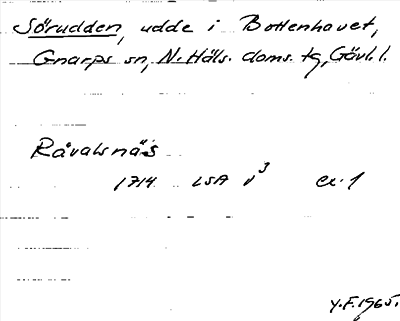 Sörudden, udde i Bottenhavet,
Gnarps sn, N. Häls. doms. tg, Gävl. l.
Råvalsnäs
1714 LSA v³ ex. 1
Y.F. 1965.